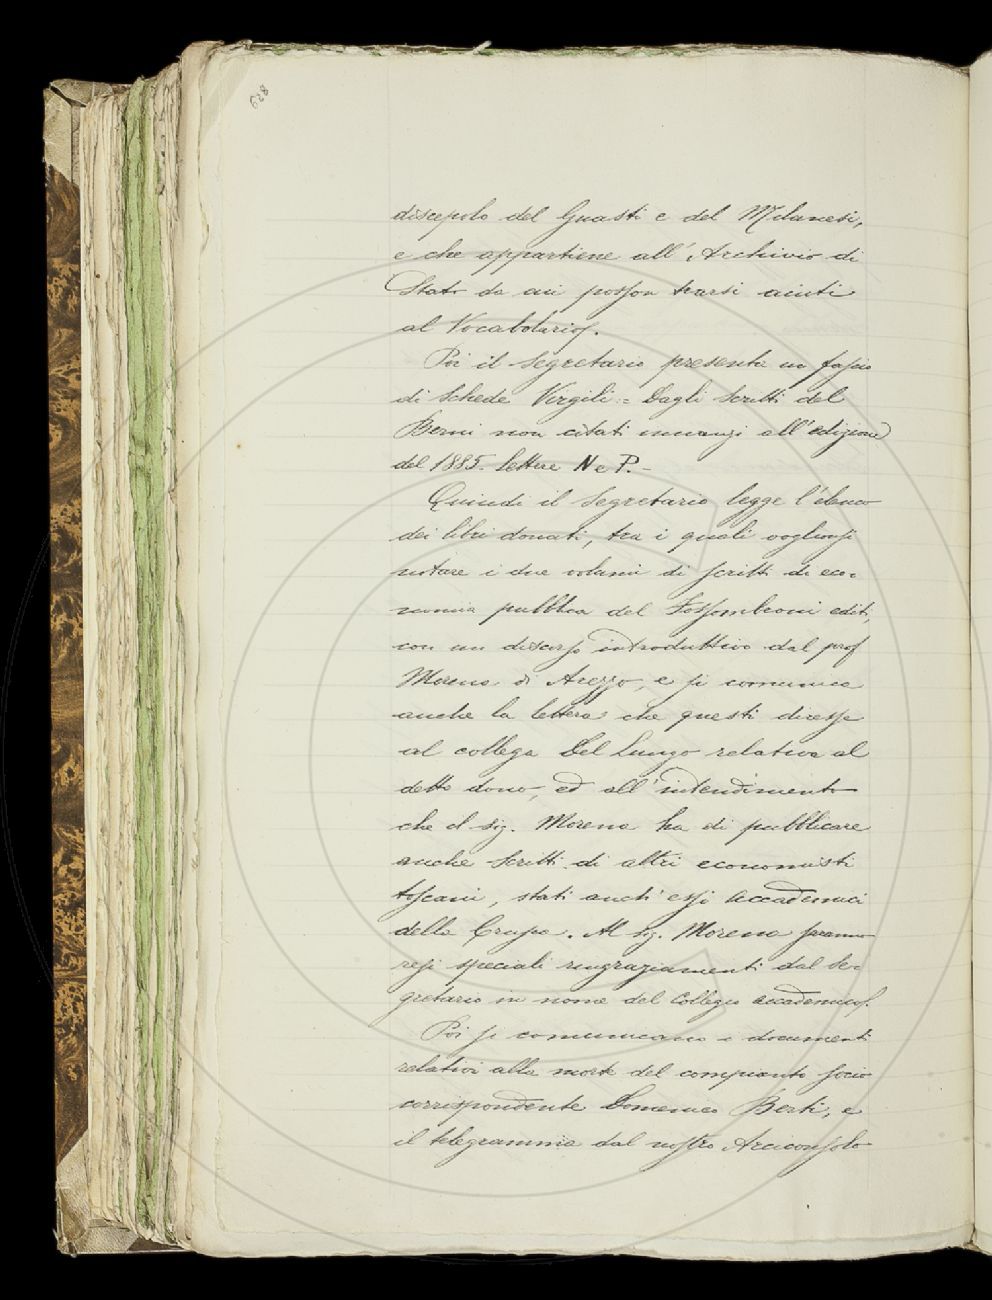 628
discepolo del Guasti e del Milanesi,
e che appartiene all'Archivio di
Stato da cui posson trarsi aiuti
al Vocabolario.
Poi il Segretario presenta un fascio
di Schede Virgili = Dagli Scritti del
Berni non citati innanzi all'edizione
del 1885. Lettere N e P. -
Quindi il Segretario legge l'elenco
dei libri donati, tra i quali voglionsi
notare i due volumi di scritti di eco-
nomia pubblica del Fossombroni editi,
con un discorso introduttivo dal prof
Moreno di Arezzo, e si comunica
anche la lettera che questi diresse
al collega Del Lungo relativa al
detto dono, ed all'intendimento
che il sig. Moreno ha di pubblicare
anche scritti di altri economisti
toscani, stati anch'essi Accademici
della Crusca. Al sig. Moreno saranno
resi speciali ringraziamenti dal Se-
gretario in nome del Collegio accademico.
Poi si comunicano i documenti
relativi alla morte del compianto socio
corrispondente Domenico Berti, e
il telegramma dal nostro Arciconsolo